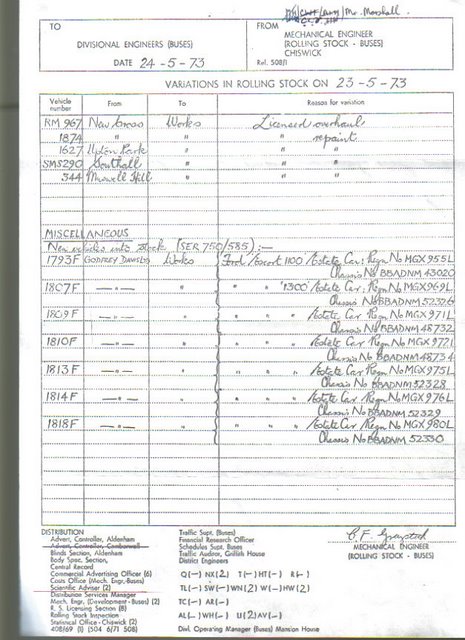 Mr. Marshall.
TO
DIVISIONAL ENGINEERS (BUSES)
DATE 24-5-73
FROM
MECHANICAL ENGINEER
(ROLLING STOCK - BUSES)
CHISWICK
Ref. 508/1
VARIATIONS IN ROLLING STOCK ON 23-5-73
Vehicle number From To Reason for variation
RM 967 New Cross Works Licensed overhaul
1874 " " " repaint
1627 Upton Park " " "
SMS290 Southall " " "
344 Muswell Hill " " "
MISCELLANEOUS
New vehicles into stock (SER 750/585):-
1793F GODFREY DAVIS LTD Works Ford Escort 1100 Estate Car: Regn No MGX 955L
Chassis No BBADNM 43020
1807F — " — " " " 1300 Estate Car: Regn No MGX969L
Chassis No BBADNM 52326
1809F — " — " " " " Estate Car: Regn No MGX 971L
Chassis No BBADNM 48732
1810F — " — " " " " Estate Car Regn No MGX 972L
Chassis No BBADNM 48734
1813F — " — " " " " Estate Car Regn No MGX 975L
Chassis No BBADNM 52328
1814F — " — " " " " Estate Car Regn No MGX 976L
Chassis No BBADNM 52329
1818F — " — " " " " Estate Car Regn No MGX 980L
Chassis No BBADNM 52330
MECHANICAL ENGINEER
(ROLLING STOCK - BUSES)
DISTRIBUTION
Advert, Controller, Aldenham
Advert, Controller, Camberwell
Blinds Section, Aldenham
Body Spec. Section,
Central Record
Commercial Advertising Officer (6)
Costs Office (Mech. Engr.-Buses)
Scientific Adviser (2)
Distribution Services Manager
Mech. Engr. (Development - Buses) (2)
R. S. Licensing Section (8)
Rolling Stock Inspection
Statistical Office - Chiswick (2)
408/69 (1) (504 6/71 508)
Traffic Supt. (Buses)
Financial Research Officer
Schedules Supt. Buses
Traffic Auditor, Griffith House
District Engineers
Q(-) NX(2) T(-) HT(-) R(-)
TL(-) SW(-) WN(2) W(-) HW(2)
TC(-) AR(-)
AL(-) WH(-) U(2) AV(-)
Divl. Operating Manager (Buses) Mansion House